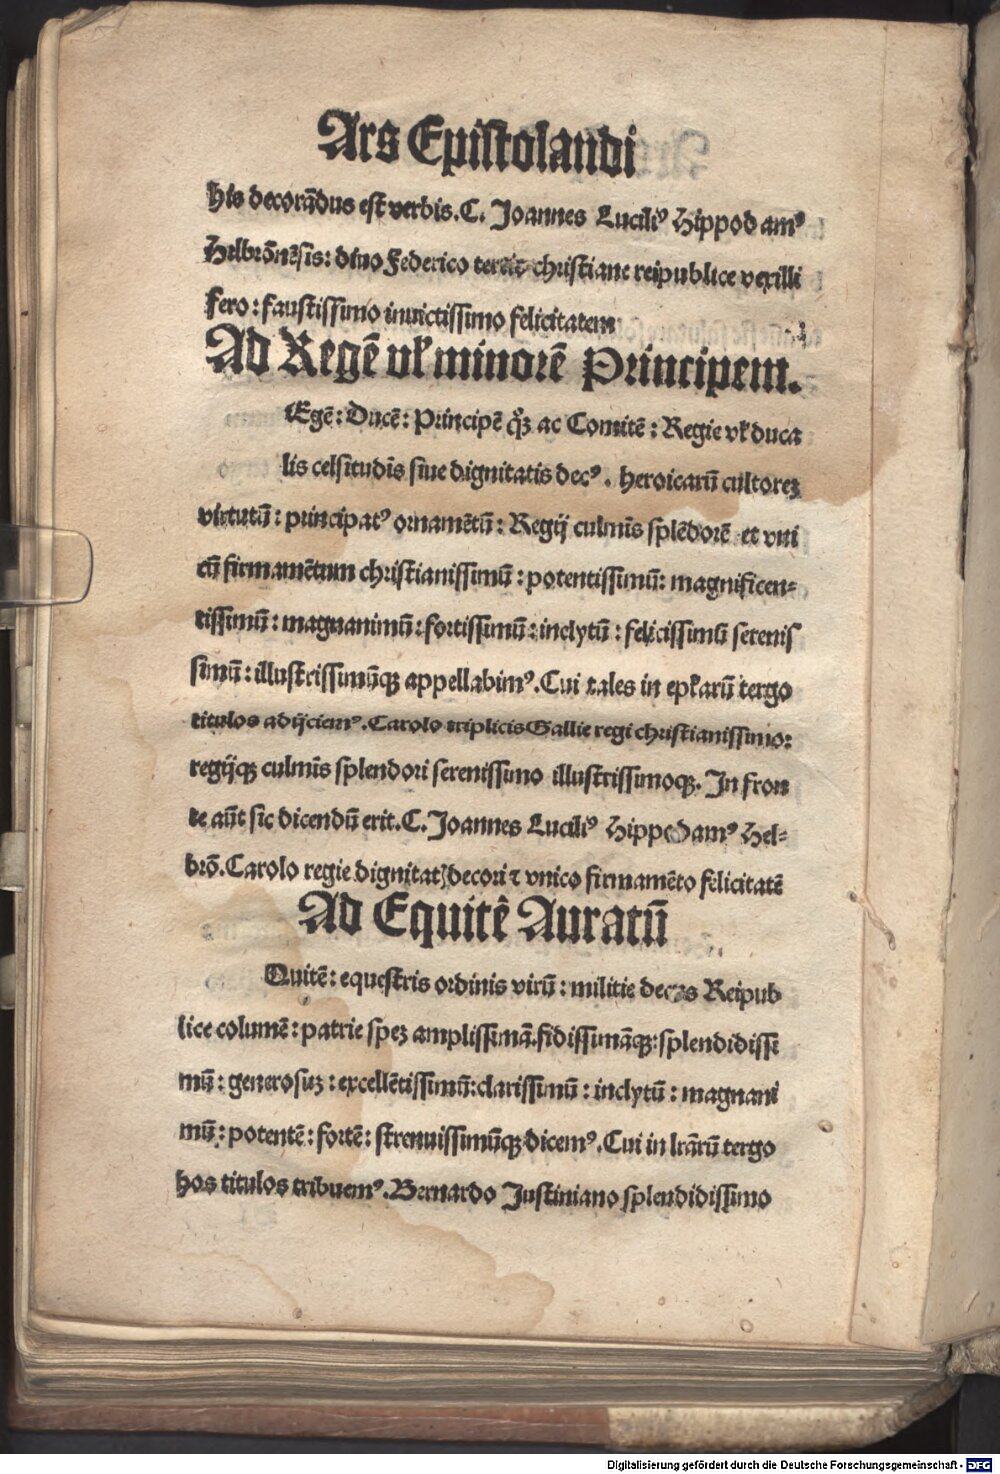 Ars Epistolandi
his decorādus est verbis. C. Joannes Lucili⁹ Hippodam⁹
Helbrōnēsis: diuo Federico tercio christiane reipublice vexilli
fero: faustissimo inuictissimo felicitatem
Ad Regē vl' minorē Principem.
Egē: Ducē: Principē qȝ ac Comitē: Regie vl' duca
lis celsitudīs siue dignitatis dec⁹. heroicarū cultoreȝ
virtutū: principat⁹ ornamētū: Regij culmīs splēdorē et vni
cū firmamētum christianissimū: potentissimū: magnificen-
tissimū: magnanimū: fortissimū: inclytū: felicissimū serenis
simū: illustrissimūqȝ appellabim⁹. Cui tales in epl'arū tergo
titulos adijciem⁹. Carolo triplicis Gallie regi christianissimo:
regijqȝ culmīs splendori serenissimo illustrissimoqȝ. In fron
te aūt sic dicendū erit. C. Joannes Lucili⁹ Hippodam⁹ Hel-
brō. Carolo regie dignitatꝭ decori ⁊ vnico firmamēto felicitatē
Ad Equitē Auratū
Quitē: equestris ordinis virū: militie decus Reipub
lice columē: patrie speȝ amplissimā. fidissimāqȝ: splendidissi
mū: generosuȝ: excellētissimū: clarissimū: inclytū: magnani
mū: potentē: fortē: strenuissimūqȝ dicem⁹. Cui in lrārū tergo
hos titulos tribuem⁹. Bernardo Justiniano splendidissimo
Digitalisierung gefördert durch die Deutsche Forschungsgemeinschaft - DFG